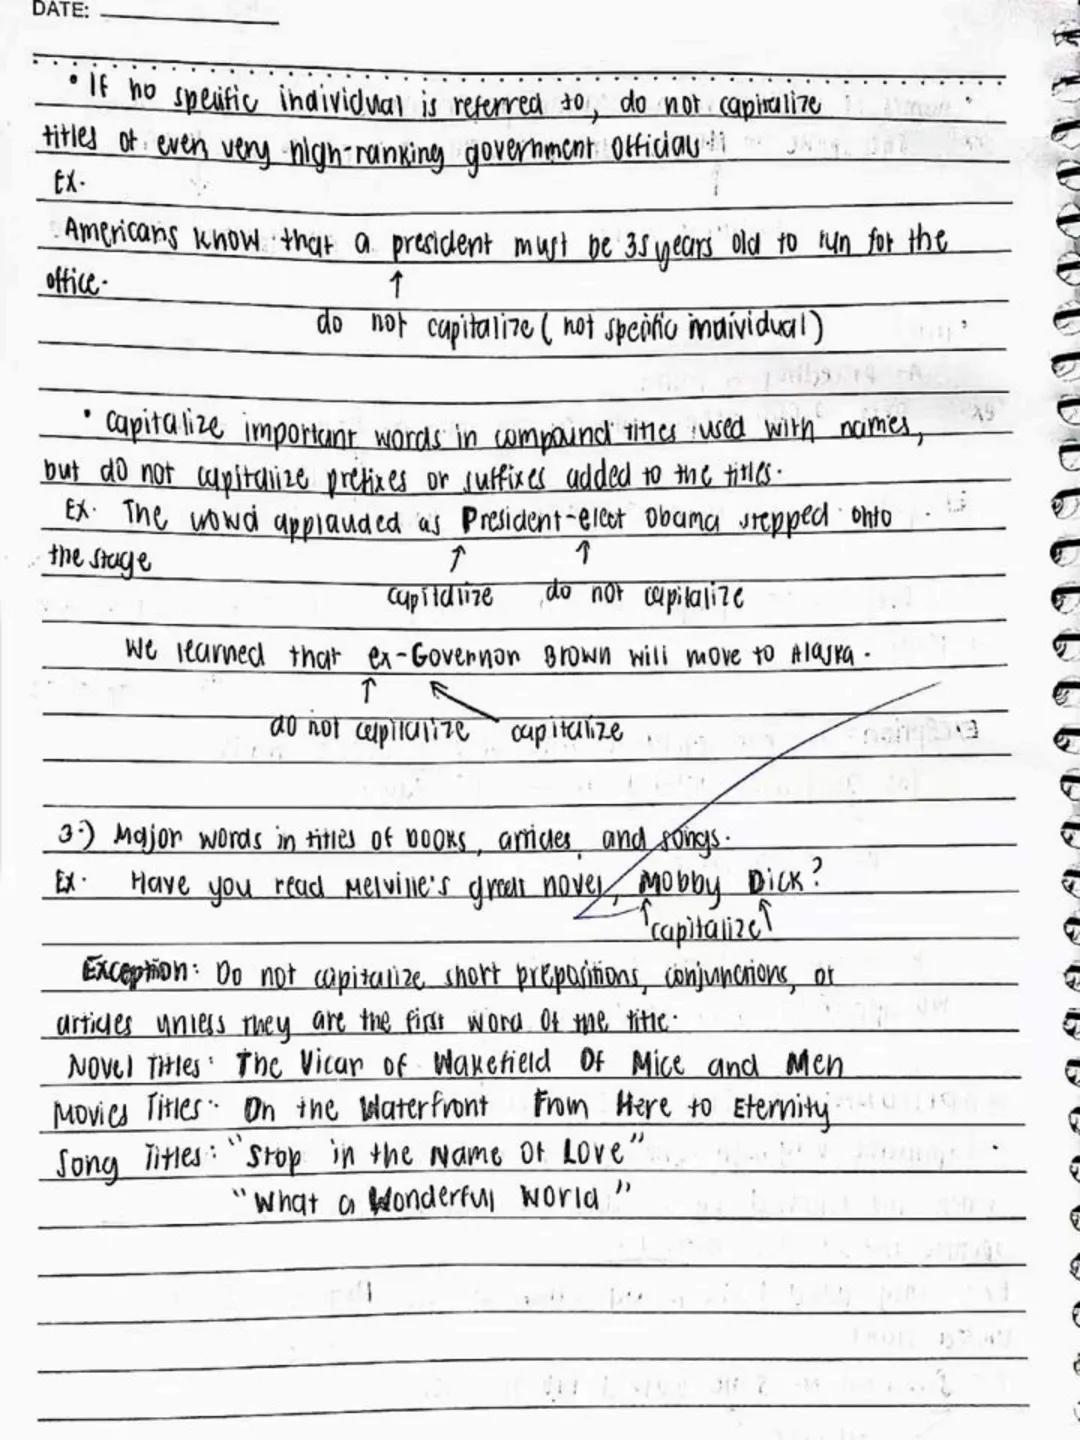 DATE:
• If no specific individual is referred to, do not capitalize
titles of even very high-ranking government officials
Ex.
Americans know that a president must be 35 years old to run for the
office.
↑
do not capitalize ( not specific individual)
• capitalize important words in compound titles used with names,
but do not capitalize prefixes or suffixes added to the titles.
Ex. The crowd applauded as President-elect Obama stepped onto
the stage
↑ ↑
capitalize do not capitalize
We learned that ex-Governon Brown will move to Alaska.
↑ ↖
do not capitalize capitalize
3.) Major words in titles of books, articles, and songs.
Ex. Have you read Melville's great novel, Mobby Dick?
↑capitalize↑
Exception: Do not capitalize short prepositions, conjunctions, or
articles unless they are the first word of the title.
Novel Titles: The Vicar of Wakefield Of Mice and Men
Movies Titles: On the Waterfront From Here to Eternity
Song Titles: "Stop in the Name Of Love"
"What a Wonderful World"